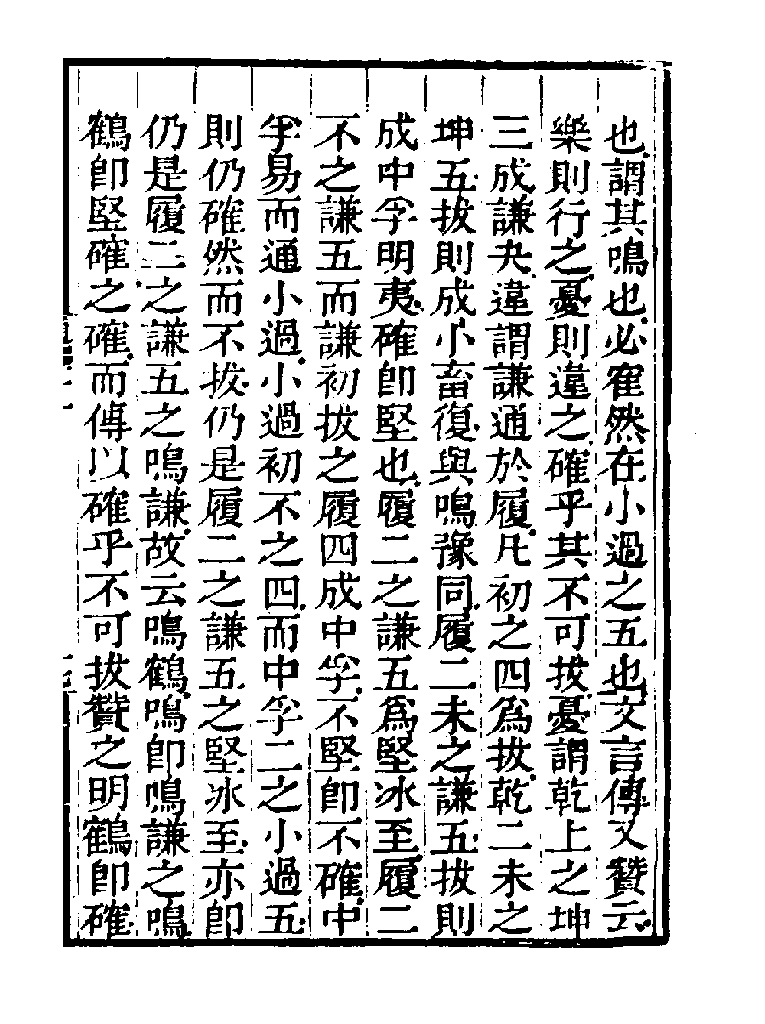 也謂其鳴也必寉然在小過之五也文言傳又贊云
樂則行之憂則違之確乎其不可拔憂謂乾上之坤
三成謙夬違謂謙通於履凡初之四爲拔乾二未之
坤五拔則成小畜復與鳴豫同履二未之謙五拔則
成中孚明夷確即堅也履二之謙五爲堅冰至履二
不之謙五而謙初拔之履四成中孚不堅即不確中
孚易而通小過小過初不之四而中孚二之小過五
則仍確然而不拔仍是履二之謙五之堅冰至亦即
仍是履二之謙五之鳴謙故云鳴鶴鳴即鳴謙之鳴
鶴即堅確之確而傳以確乎不可拔贊之明鶴即確